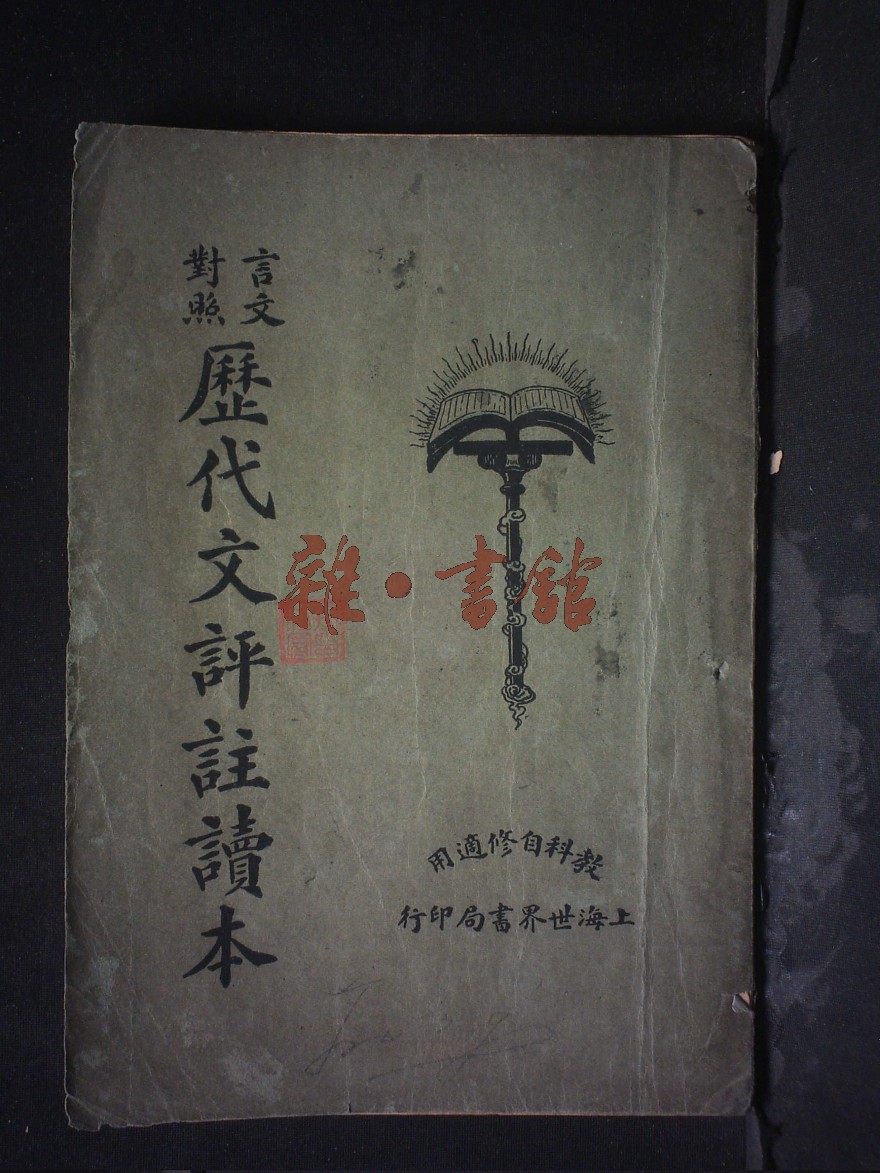 言文
對照
歷代文評註讀本
教科自修適用
上海世界書局印行
雜·書館